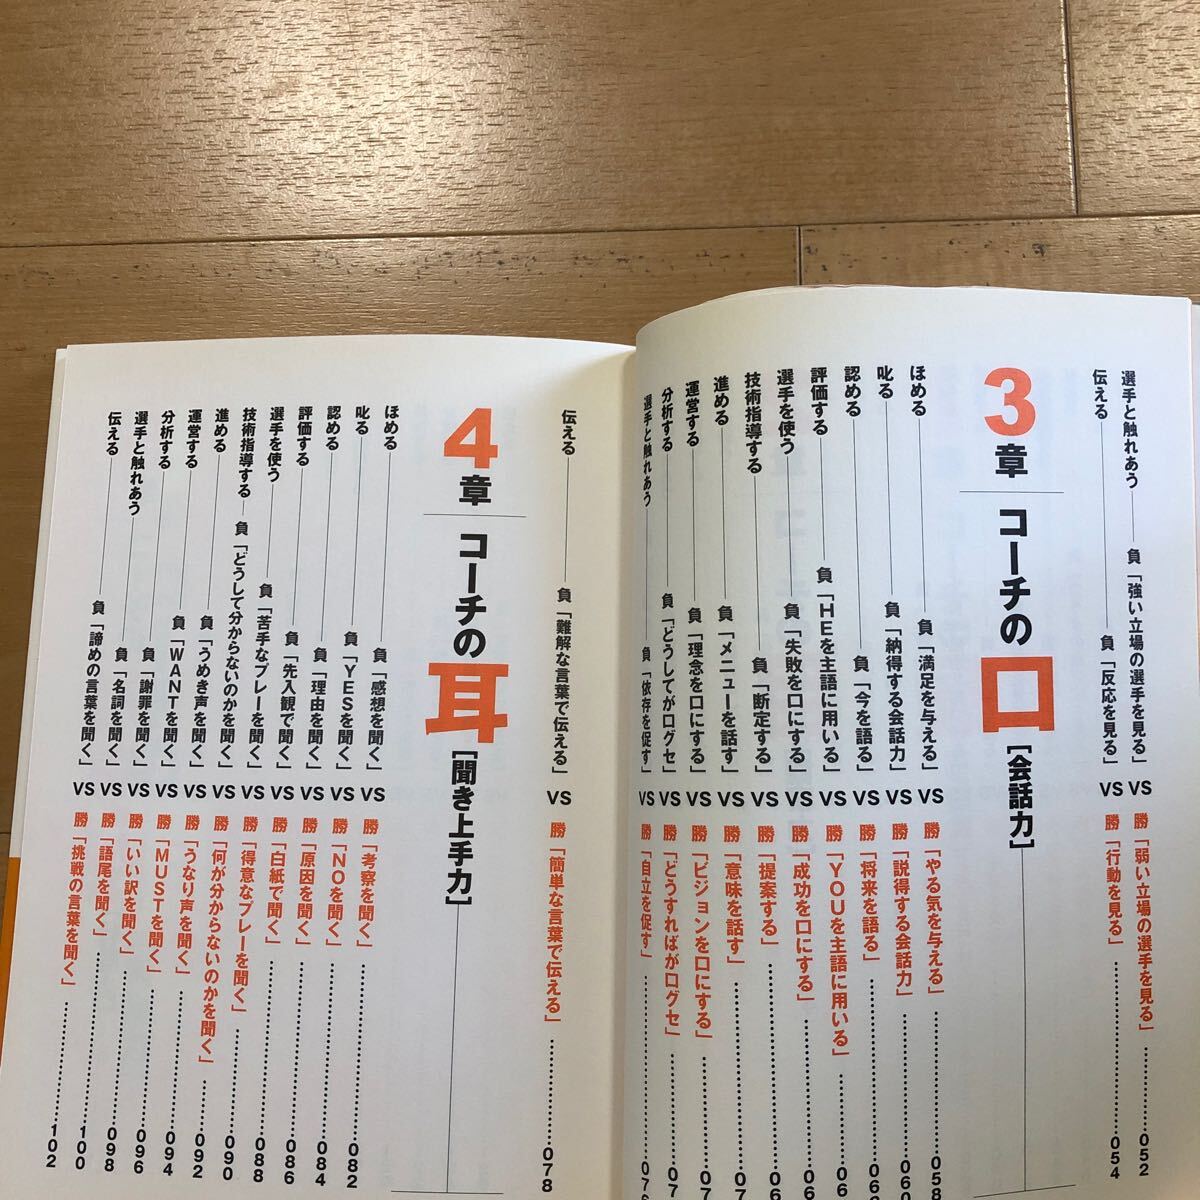 選手と触れあう 負「強い立場の選手を見る」 VS 勝「弱い立場の選手を見る」 052
伝える 負「反応を見る」 VS 勝「行動を見る」 054
3章 コーチの口［会話力］
ほめる 負「満足を与える」 VS 勝「やる気を与える」 058
叱る 負「納得する会話力」 VS 勝「説得する会話力」 060
認める 負「今を語る」 VS 勝「将来を語る」
評価する 負「HEを主語に用いる」 VS 勝「YOUを主語に用いる」
選手を使う 負「失敗を口にする」 VS 勝「成功を口にする」
技術指導する 負「断定する」 VS 勝「提案する」
進める 負「メニューを話す」 VS 勝「意味を話す」
運営する 負「理念を口にする」 VS 勝「ビジョンを口にする」
分析する 負「どうしてが口グセ」 VS 勝「どうすればが口グセ」
選手と触れあう 負「依存を促す」 VS 勝「自立を促す」
伝える 負「難解な言葉で伝える」 VS 勝「簡単な言葉で伝える」 078
4章 コーチの耳［聞き上手力］
ほめる 負「感想を聞く」 VS 勝「考察を聞く」 082
叱る 負「YESを聞く」 VS 勝「NOを聞く」 084
認める 負「理由を聞く」 VS 勝「原因を聞く」 086
評価する 負「先入観で聞く」 VS 勝「白紙で聞く」 088
選手を使う 負「苦手なプレーを聞く」 VS 勝「得意なプレーを聞く」 090
技術指導する 負「どうして分からないのかを聞く」 VS 勝「何が分からないのかを聞く」 092
進める 負「うめき声を聞く」 VS 勝「うなり声を聞く」 094
運営する 負「WANTを聞く」 VS 勝「MUSTを聞く」 096
分析する 負「謝罪を聞く」 VS 勝「いい訳を聞く」 098
選手と触れあう 負「名詞を聞く」 VS 勝「語尾を聞く」 100
伝える 負「諦めの言葉を聞く」 VS 勝「挑戦の言葉を聞く」 102